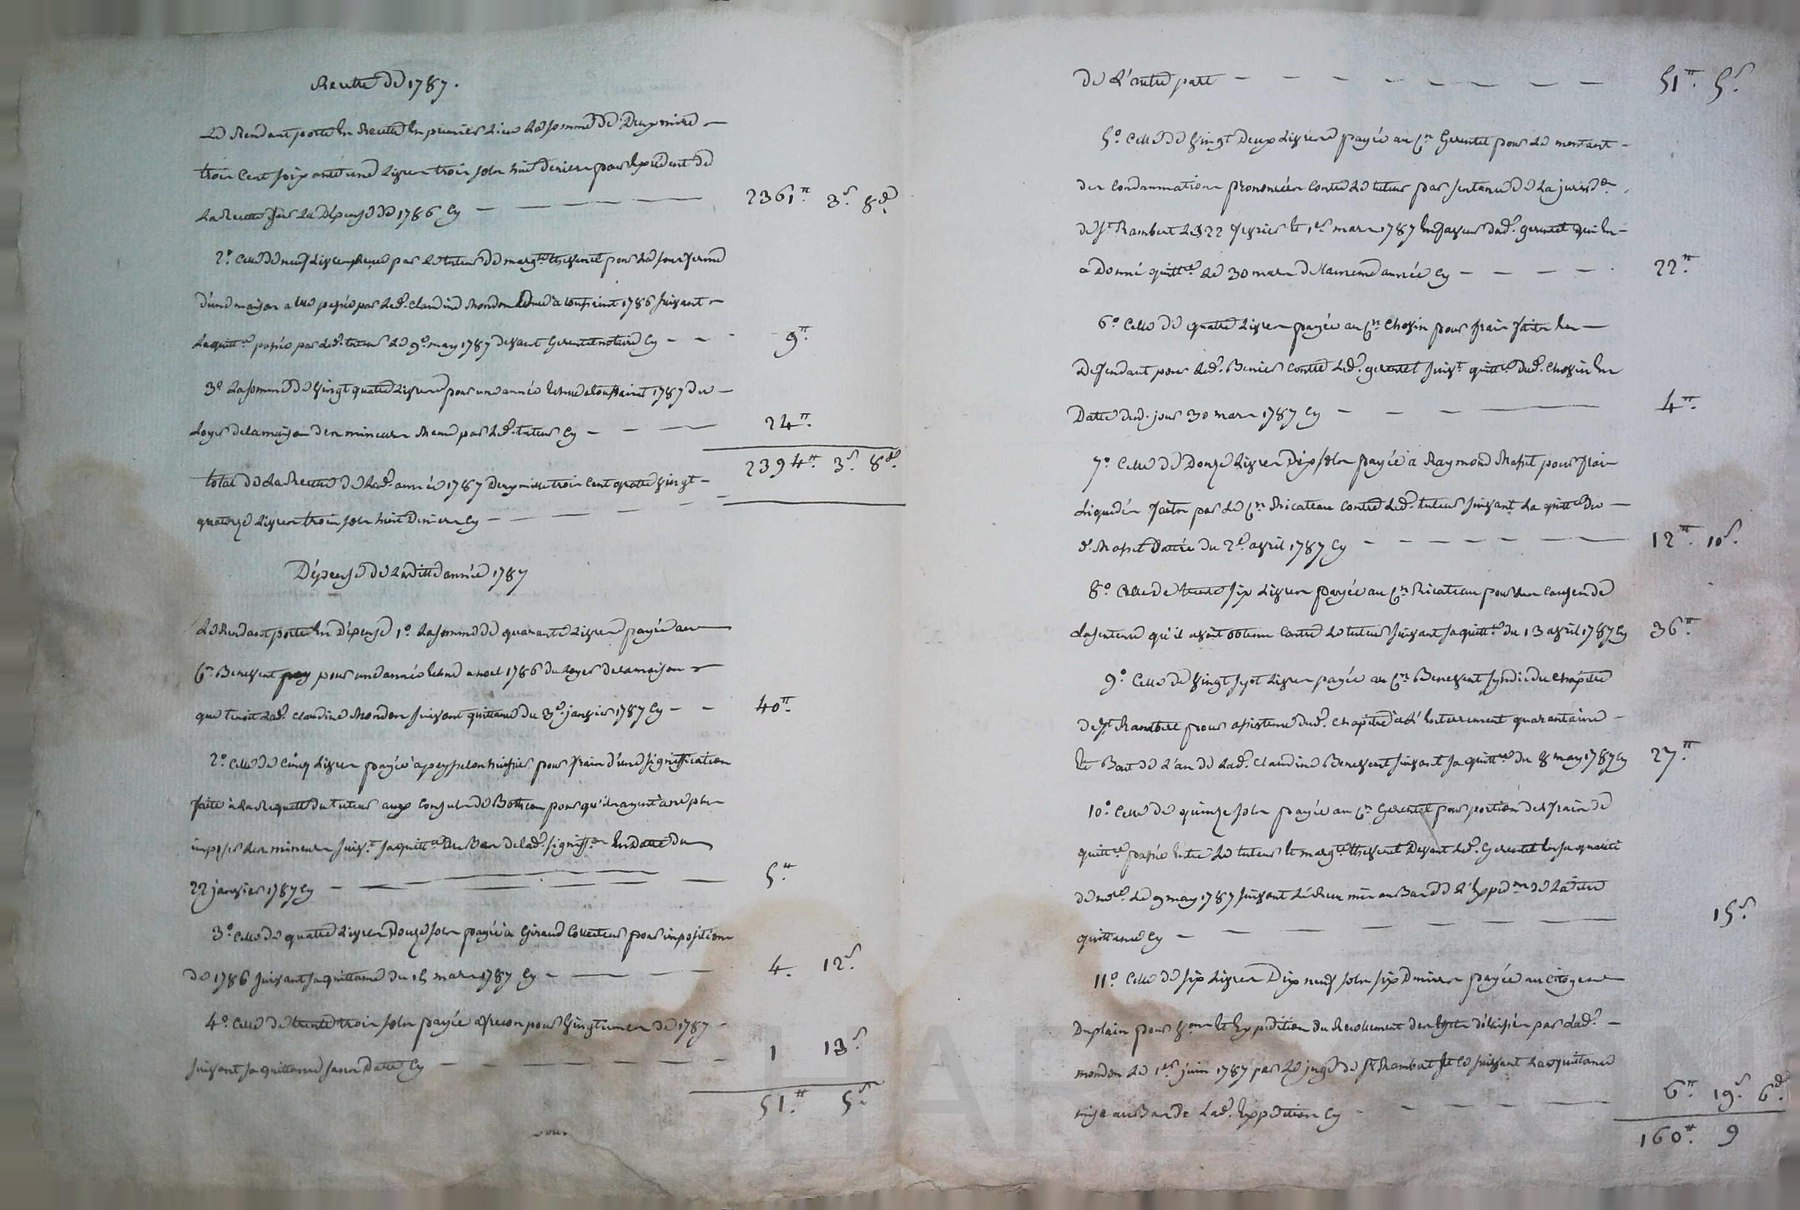 Recette de 1787.
Le Rendant porte En Recette En premier Lieu La somme de Deux mille
trois Cent soixante une Livres trois sols huit deniers pour Exédent de
La Recette sur La dépense de 1786 Cy 2361# 3s 8d
2° Celle de neuf Livres reçue par Le tuteur de marg.te thevenet pour La sous ferme
d'une maison a Elle passée par Lad. Claudine Mondon Echue a toussaint 1786 suivant
La quitt.ce passée par led. tuteur Le 9e may 1787 devant Gerentet notaire Cy 9#
3° La somme de vingt quatre Livres pour une année Echue a toussaint 1787 du
Loyer de la maison des mineurs Reçue par Led. tuteur Cy 24#
2394# 3s 8d
total de La Recette de Lad. année 1787 Deux mille trois Cent quatre vingt
quatorze Livres trois sols huit Deniers Cy
Dépense de Laditte année 1787
Le Rendant porte En dépense 1° La somme de quarante Livres payée au
C.en Benevent pour une année Echue a noel 1786 du Loyer de la maison
que tenoit Lad. Claudine Mondon suivant quittance du 3e janvier 1787 Cy 40#
2° Celle de Cinq Livres payée a huissier pour frais d'une signiffication
faite à La Requette du tuteur aux Consuls de Botheon pour qu'ils n'ayent à ne plus
imposer Les mineurs suiv.t sa quitt.ce au Bas de lad. signiff.on En datte du
22 janvier 1787 Cy 5#
3° Celle de quatre Livres Douze sols payée à Giraud Collecteur pour imposition
de 1786 suivant sa quittance du 15 mars 1787 Cy 4. 12s
4° Celle de trente trois sols payée a pour vingtiemes de 1787
suivant sa quittance sans Datte Cy 1 13s
51# 5s
de L'autre part 51# 5s
5° Celle de vingt Deux Livres payée au C.en Gerentet pour Le montant
des Condamnations prononcées Contre Le tuteur par sentence de La jurisd.on
de St Rambert Les 22 fevrier Et 1er mars 1787 En faveur dud. gerentet qui En
a Donné quitt.ce Le 30 mars de La meme année Cy 22#
6° Celle de quatre Livres payée au C.en Chosin pour frais faits En
Defendant pour Led. Contre Led. gerentet suiv.t quitt.ce Dud. Chosin En
Datte dud. jour 30 mars 1787 Cy 4#
7° Celle de Douze Livres Dix sols payée a Raymond pour frais
Liquidés faits par Le C.en Ricateau Contre Led. tuteur suivant La quitt.ce du
d. Datée du 2e avril 1787 Cy 12# 10s
8° Celle de trente six Livres payée au C.en Ricateau pour Les Causes de
La sentence qu'il avoit obtenue Contre Le tuteur suivant sa quitt.ce du 13 avril 1787 Cy 36#
9° Celle de vingt sept Livres payée au C.en Benevent syndic du Chapitre
de St Rambert pour assistance dud. Chapitre à L'Enterrement quarantaine
Et Bout de L'an de Lad. Claudine Benevent suivant sa quitt.ce du 8 may 1787 Cy 27#
10° Celle de quinze sols payée au C.en Gerentet pour portion des frais de
quitt.ce passée Entre Le tuteur Et marg.te thevenet Devant Led. Gerentet En sa qualité
de no.re Le 9 may 1787 suivant Le Reçu mis au Bas de L'Exped.on de Laditte
quittance Cy 15s
11° Celle de six Livres Dix neuf sols six Deniers payée au Citoyen
Duplain pour Et Expedition du Recollement des Effets délaissés par Lad.
mondon Le 1er juin 1787 par Le juge de St Rambert suivant La quittance
mise au Bas de Lad. Expedition Cy 6# 19s 6d
160# 9